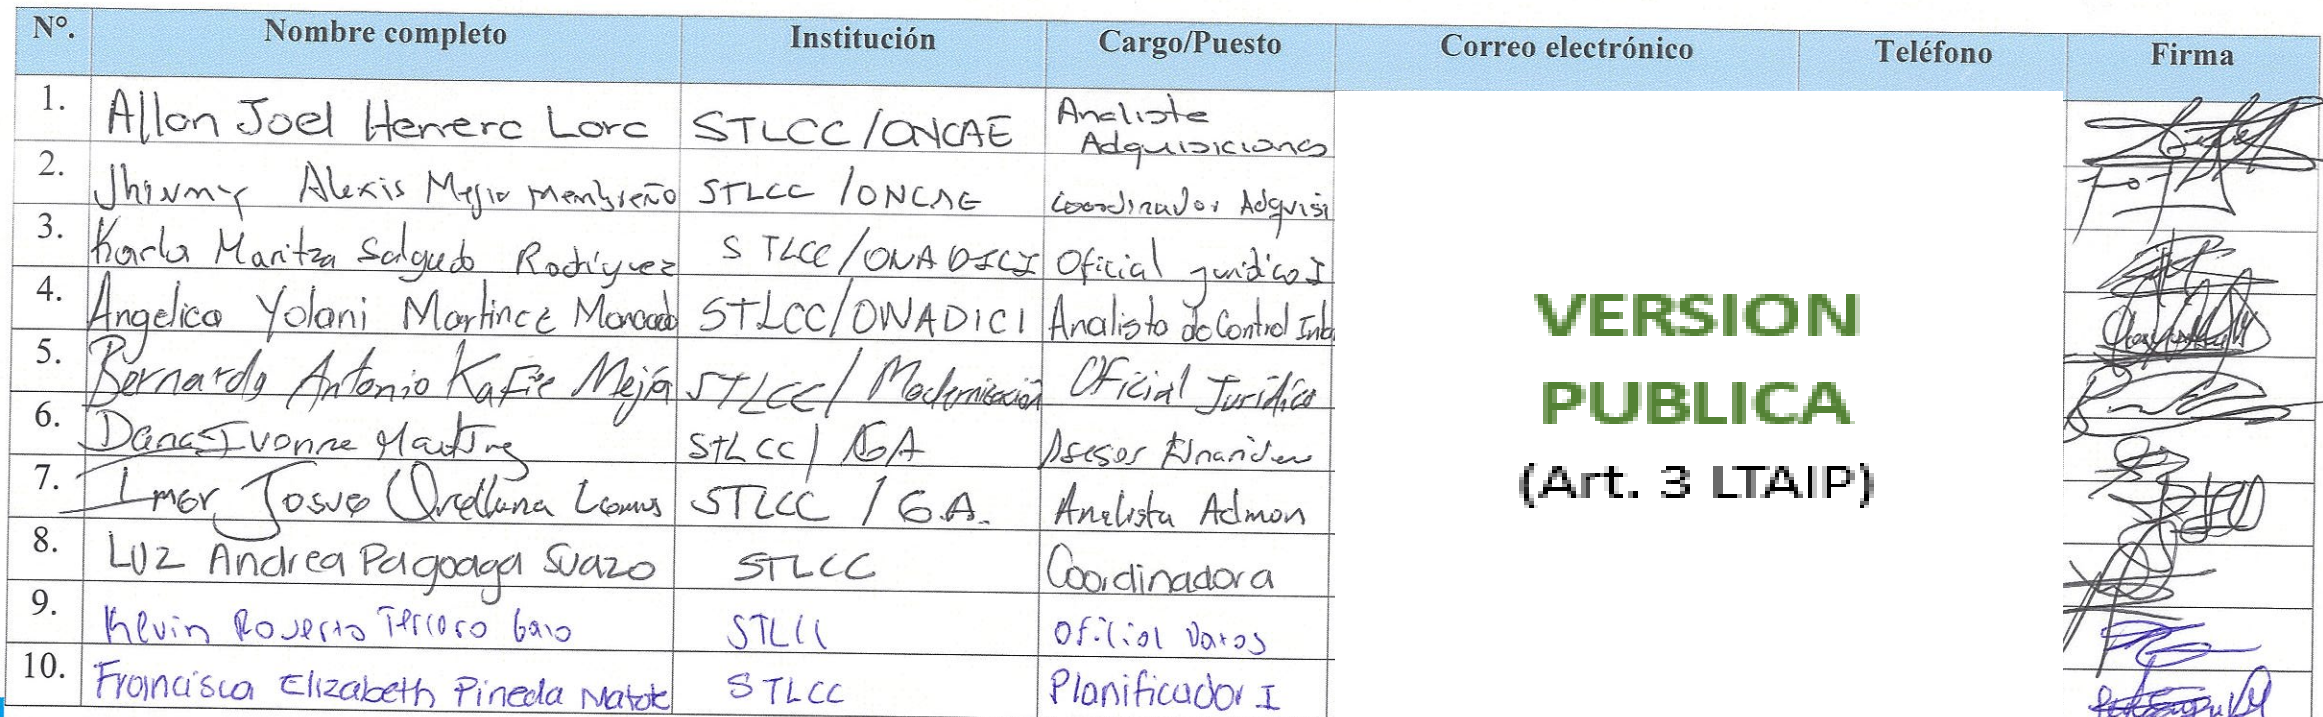 N°. Nombre completo Institución Cargo/Puesto Correo electrónico Teléfono Firma
1. Allan Joel Herrera Lara STLCC/ONCAE Analista Adquisiciones
2. Alexis Mejia Membreño STLCC /ONCAE Coordinador Adquisi
3. Karla Maritza Salgado Rodriguez STLCC/ONADICI Oficial juridico I
4. Angelica Yolani Martinez Moncada STLCC/ONADICI Analista de Control
5. Bernardo Antonio Kafie Mejía STLCC/ Modernización Oficial Jurídico
6. Dana Ivonne STLCC/ GA Asesor
7. Josue Orellana Lemus STLCC / G.A. Analista Admon
8. Luz Andrea Pagoaga Suazo STLCC Coordinadora
9. Kelvin Roberto STLCC Oficial
10. Francisca Elizabeth Pineda STLCC Planificador I
VERSION
PUBLICA
(Art. 3 LTAIP)